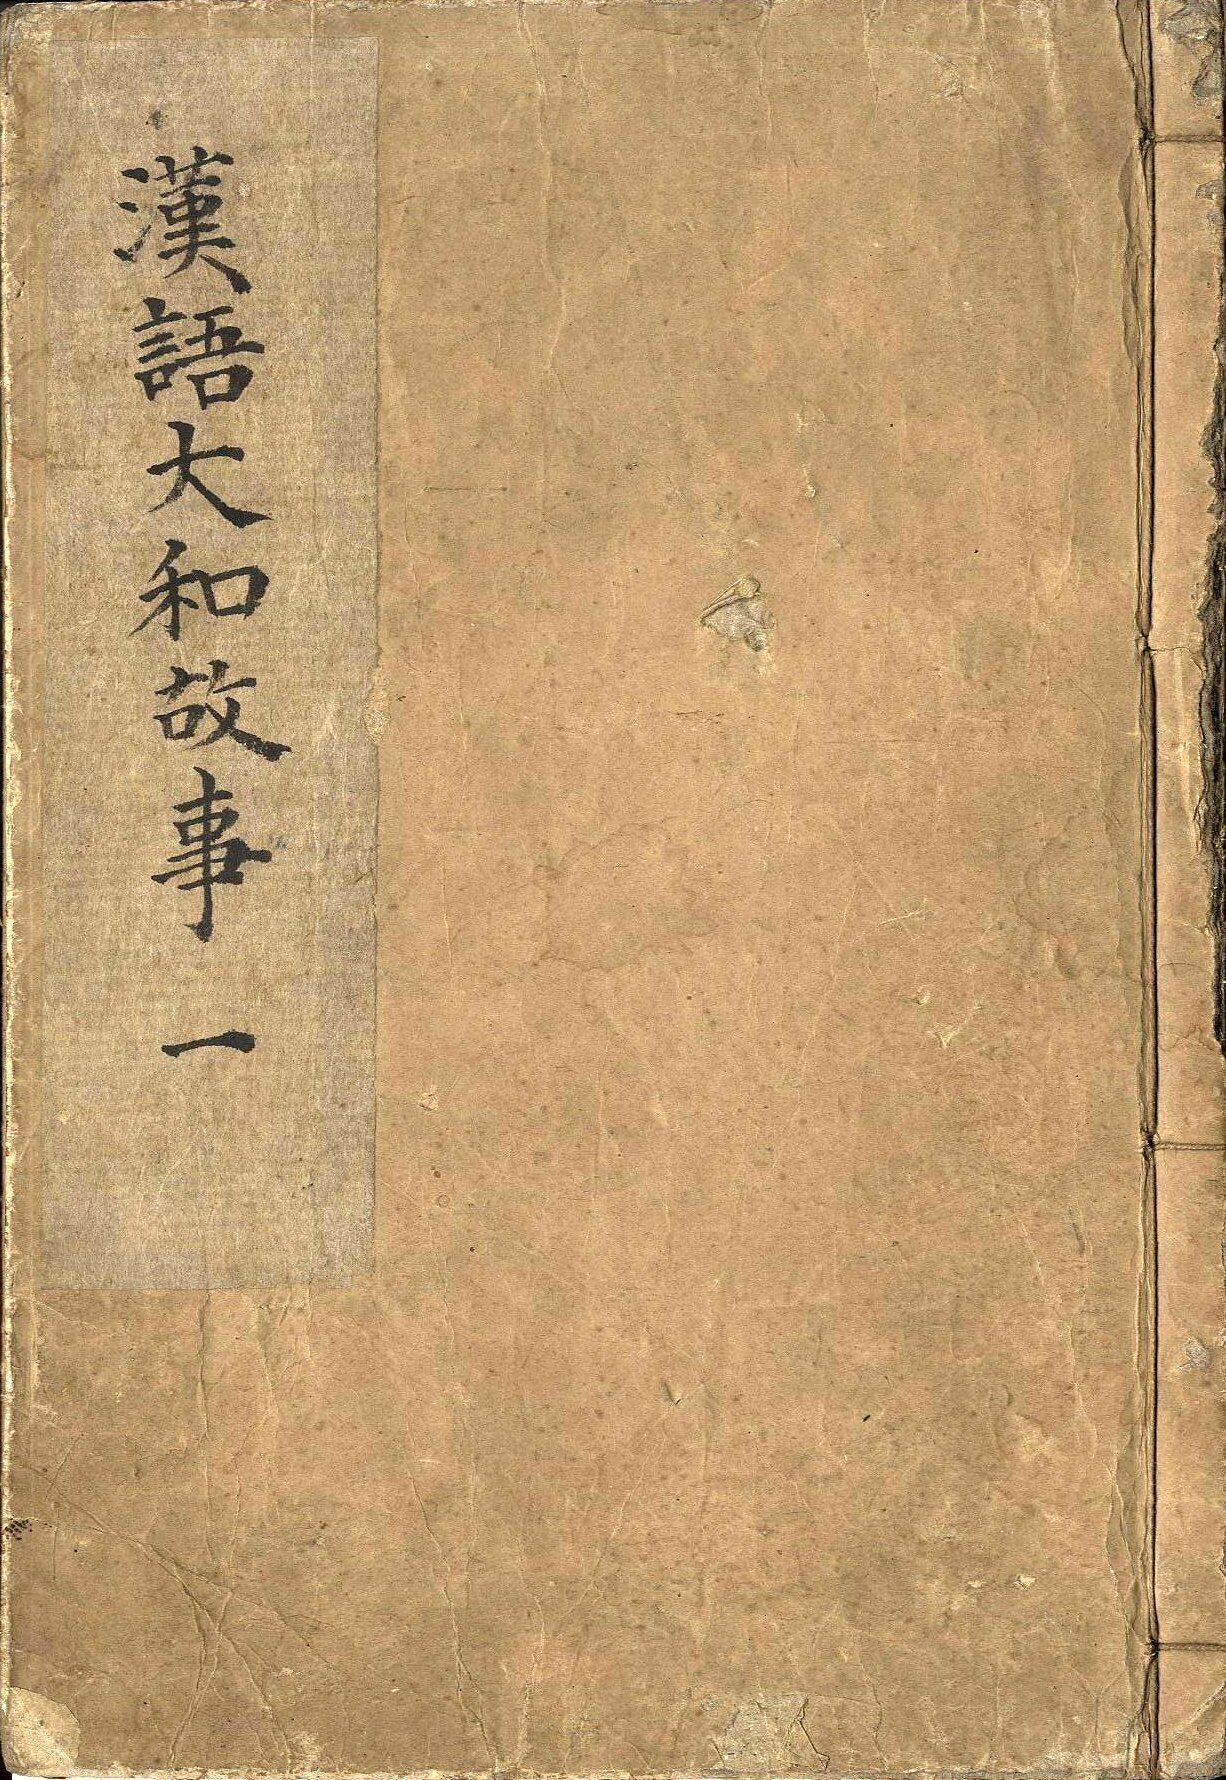 漢語大和故事 一